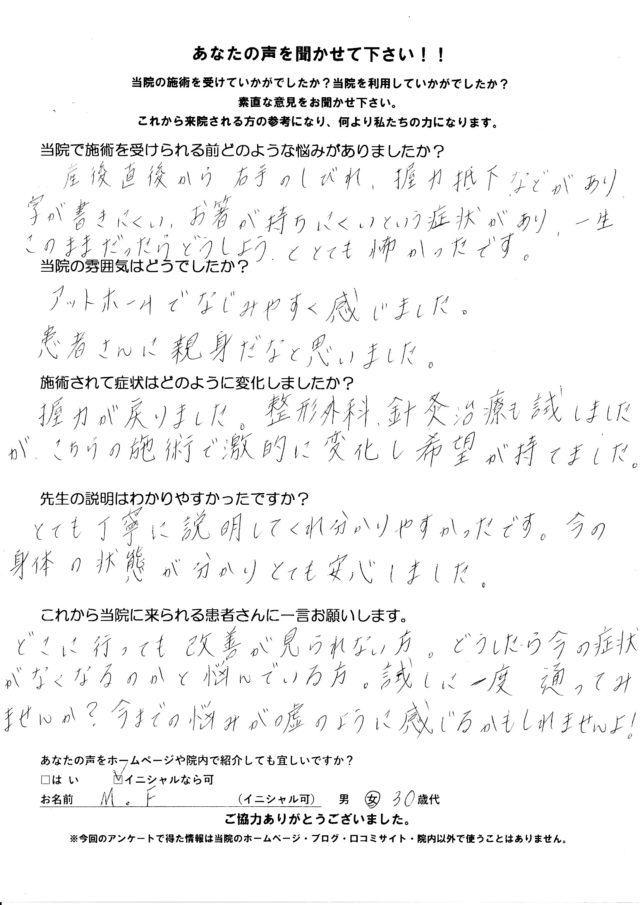 あなたの声を聞かせて下さい！！
当院の施術を受けていかがでしたか？当院を利用していかがでしたか？
素直な意見をお聞かせ下さい。
これから来院される方の参考になり、何より私たちの力になります。
当院で施術を受けられる前どのような悩みがありましたか？
産後直後から 右手のしびれ、握力抵下などがあり
字が書きにくい、お箸が持ちにくいという症状があり、一生
このままだったらどうしよう、ととても怖かったです。
当院の雰囲気はどうでしたか？
アットホームでなじみやすく感じました。
患者さんに親身だなと思いました。
施術されて症状はどのように変化しましたか？
握力が戻りました。整形外科、針灸治療も試しました
が、こちらの施術で激的に変化し希望が持てました。
先生の説明はわかりやすかったですか？
とても丁寧に説明してくれ分かりやすかったです。今の
身体の状態が分かりとても安心しました。
これから当院に来られる患者さんに一言お願いします。
どこに行っても改善が見られない方。どうしたら今の症状
がなくなるのかと悩んでいる方。試しに一度 通ってみ
ませんか？今までの悩みが嘘のように感じるかもしれませんよ！
あなたの声をホームページや院内で紹介しても宜しいですか？
□はい ☑イニシャルなら可
お名前 M.F （イニシャル可） 男 女 30歳代
ご協力ありがとうございました。
※今回のアンケートで得た情報は当院のホームページ・ブログ・口コミサイト・院内以外で使うことはありません。